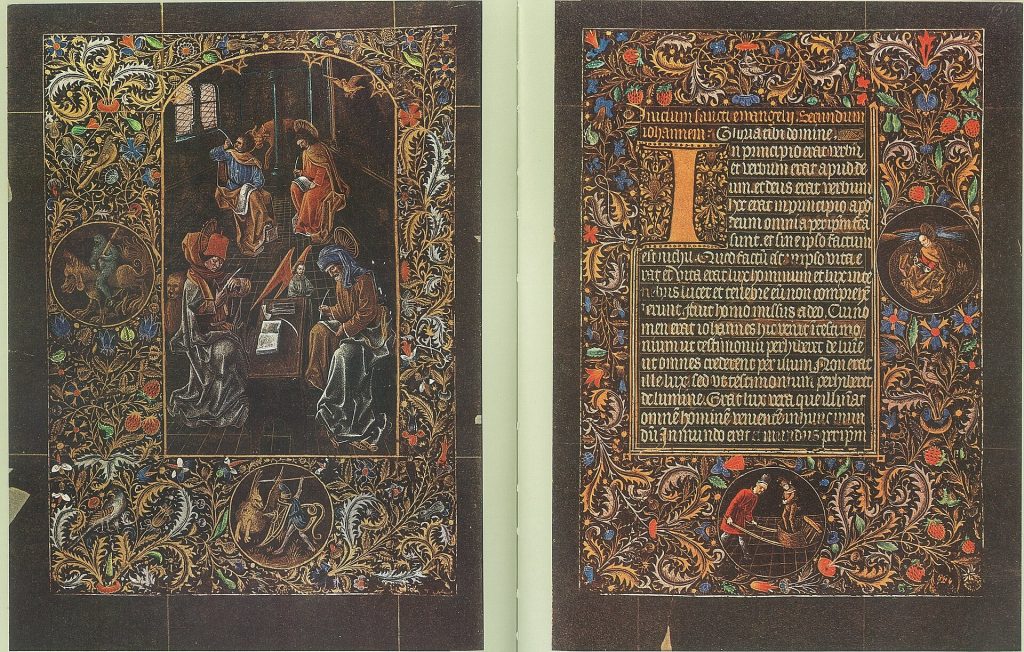 Inicium sancti evangelij. Secundum
iohannem. Gloria tibi domine.
In principio erat verbū
et verbum erat apud de
um. et deus erat verbum
hoc erat in principio apd
deum omnia per ipm fca
sunt. et sine ipso factum
est nichil. Quod factū est in ipso vita e
rat et vita erat lux hominum et lux in te
nebris lucet et tenebre eū non comprehē
erunt. fuit homo missus a deo. Cui no
men erat iohannes hic venit ī testimo
nium ut testimoniū perhiberet de lumē
ut omnes crederent per illum Non erat
ille lux. sed ut testimonium perhiberet
de lumine. Erat lux vera que illuīat
omnē hominē venientē in hunc mun
dū In mundo erat et mundus per ipm